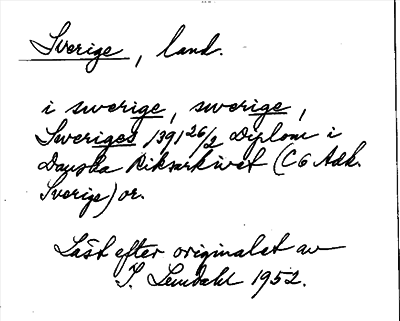 Sverige, land.
i swerige, swerige,
Sweriges 1391 26/2 Diplom i
Danska Riksarkivet (C6 Adk.
Sverige) or.
Läst efter originalet av
I. Lundahl 1952.